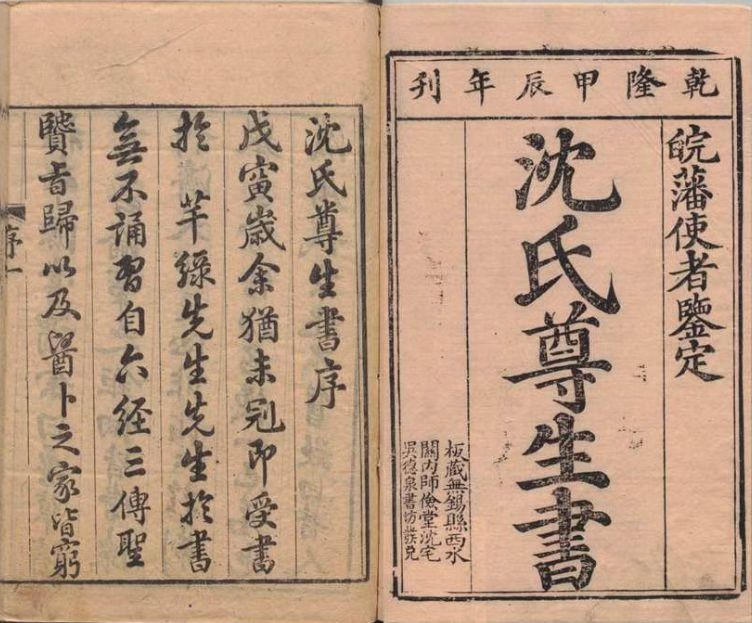 乾隆甲辰年刊
皖藩使者鑒定
沈氏尊生書
板藏無錫縣西水
關内師儉堂沈宅
吳德泉書坊發兌
沈氏尊生書序
戊寅歲余猶未冠即受書
於 芊綠先生先生於書
無不誦習自六經三傳聖
賢旨歸以及醫卜之家皆窮
序一